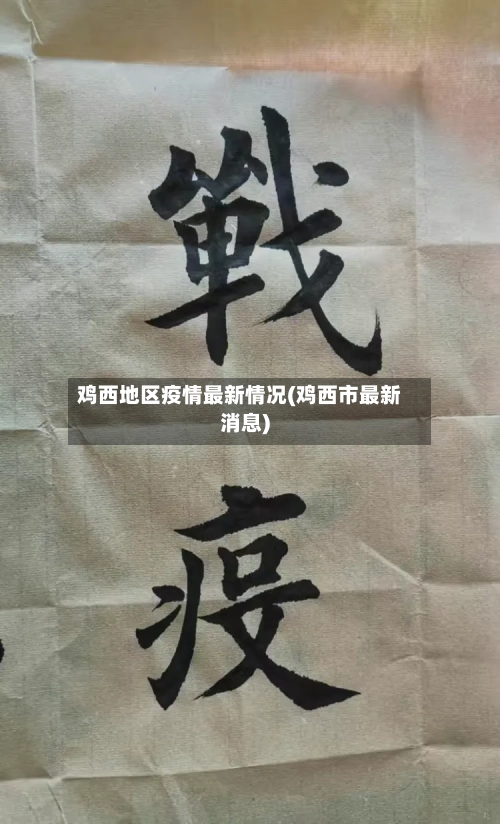 戰
鸡西地区疫情最新情况(鸡西市最新
消息)
疫